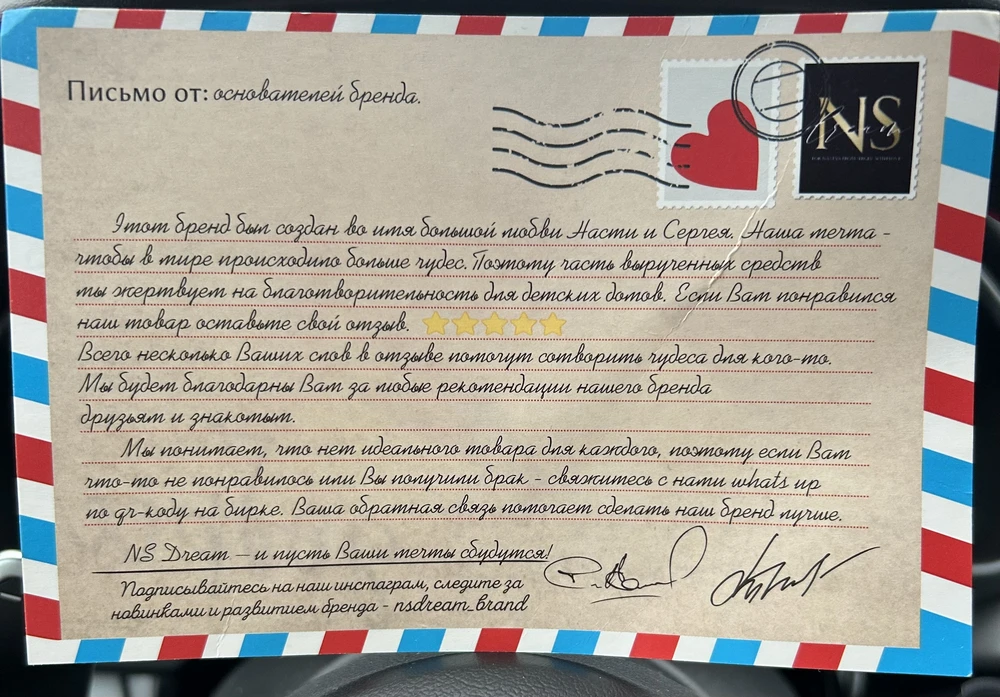 Письмо от: основателей бренда.
NS
Этот бренд был создан во имя большой любви Насти и Сергея. Наша мечта -
чтобы в мире происходило больше чудес. Поэтому часть вырученных средств
мы жертвуем на благотворительность для детских домов. Если Вам понравился
наш товар оставьте свой отзыв. ⭐⭐⭐⭐⭐
Всего несколько Ваших слов в отзыве помогут сотворить чудеса для кого-то.
Мы будем благодарны Вам за любые рекомендации нашего бренда
друзьям и знакомым.
Мы понимаем, что нет идеального товара для каждого, поэтому если Вам
что-то не понравилось или Вы получили брак - свяжитесь с нами whats up
по qr-коду на бирке. Ваша обратная связь помогает сделать наш бренд лучше.
NS Dream — и пусть Ваши мечты сбудутся!
Подписывайтесь на наш инстаграм, следите за
новинками и развитием бренда - nsdream_brand